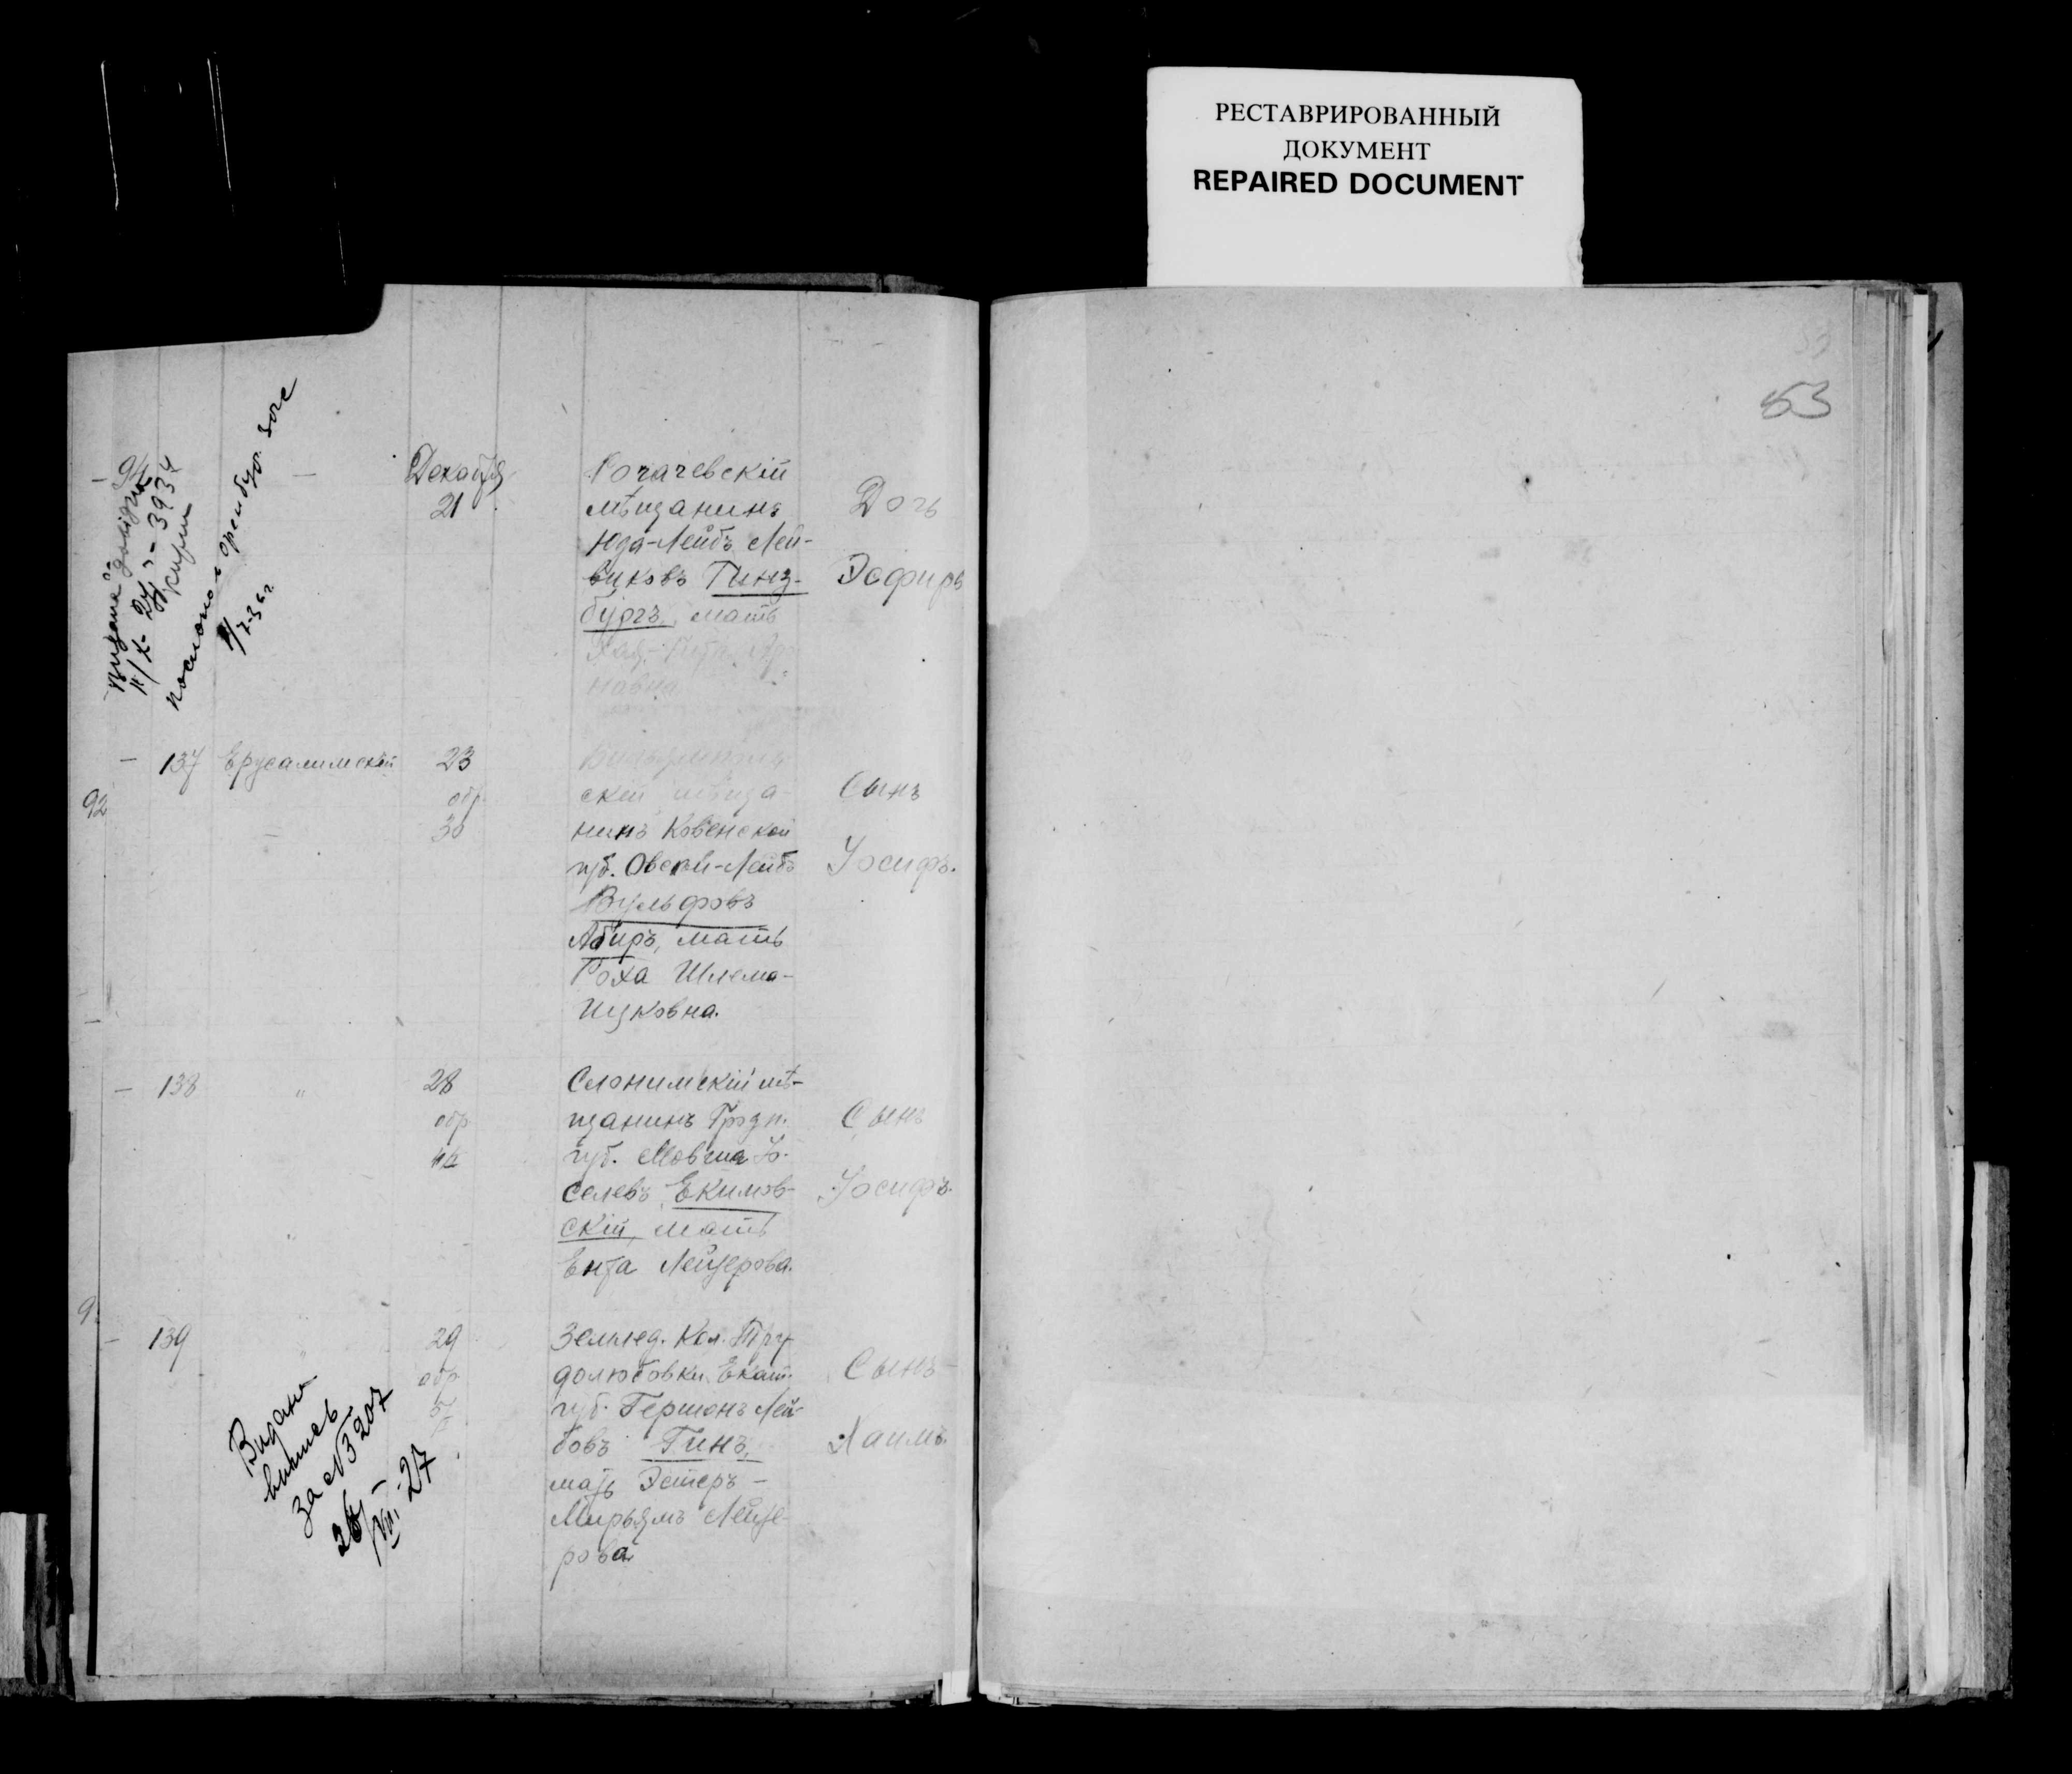 РЕСТАВРИРОВАННЫЙ
ДОКУМЕНТ
REPAIRED DOCUMENT
53
94
3934
Декабря
21
Рогачевскій
мѣщанинъ
Юда-Лейбъ Лей-
виковъ Гинз-
бургъ, мать
Дочь
Эсфирь
92
137 Ерусалимскій
23
обр.
30
скій мѣща-
нинъ Ковенской
губ. Овсей-Лейбъ
Вульфовъ
Абиръ, мать
Роха Шлема-
Ицковна.
Сынъ
Іосифъ.
138 "
28
обр
Слонимскій мѣ-
щанинъ Гродн.
губ. Мовша Іо-
селевъ Екимов-
скій, мать
Ента Лейзерова.
Сынъ
Іосифъ.
139
29
обр
Землед. Кол. Тру-
долюбовки Екат.
губ. Гершонъ Лей-
бовъ Гинъ,
мать Эстеръ-
Мирьямъ Лейзе-
рова
Сынъ
Хаимъ.
Видано
випись
за № 3207
VII. 27